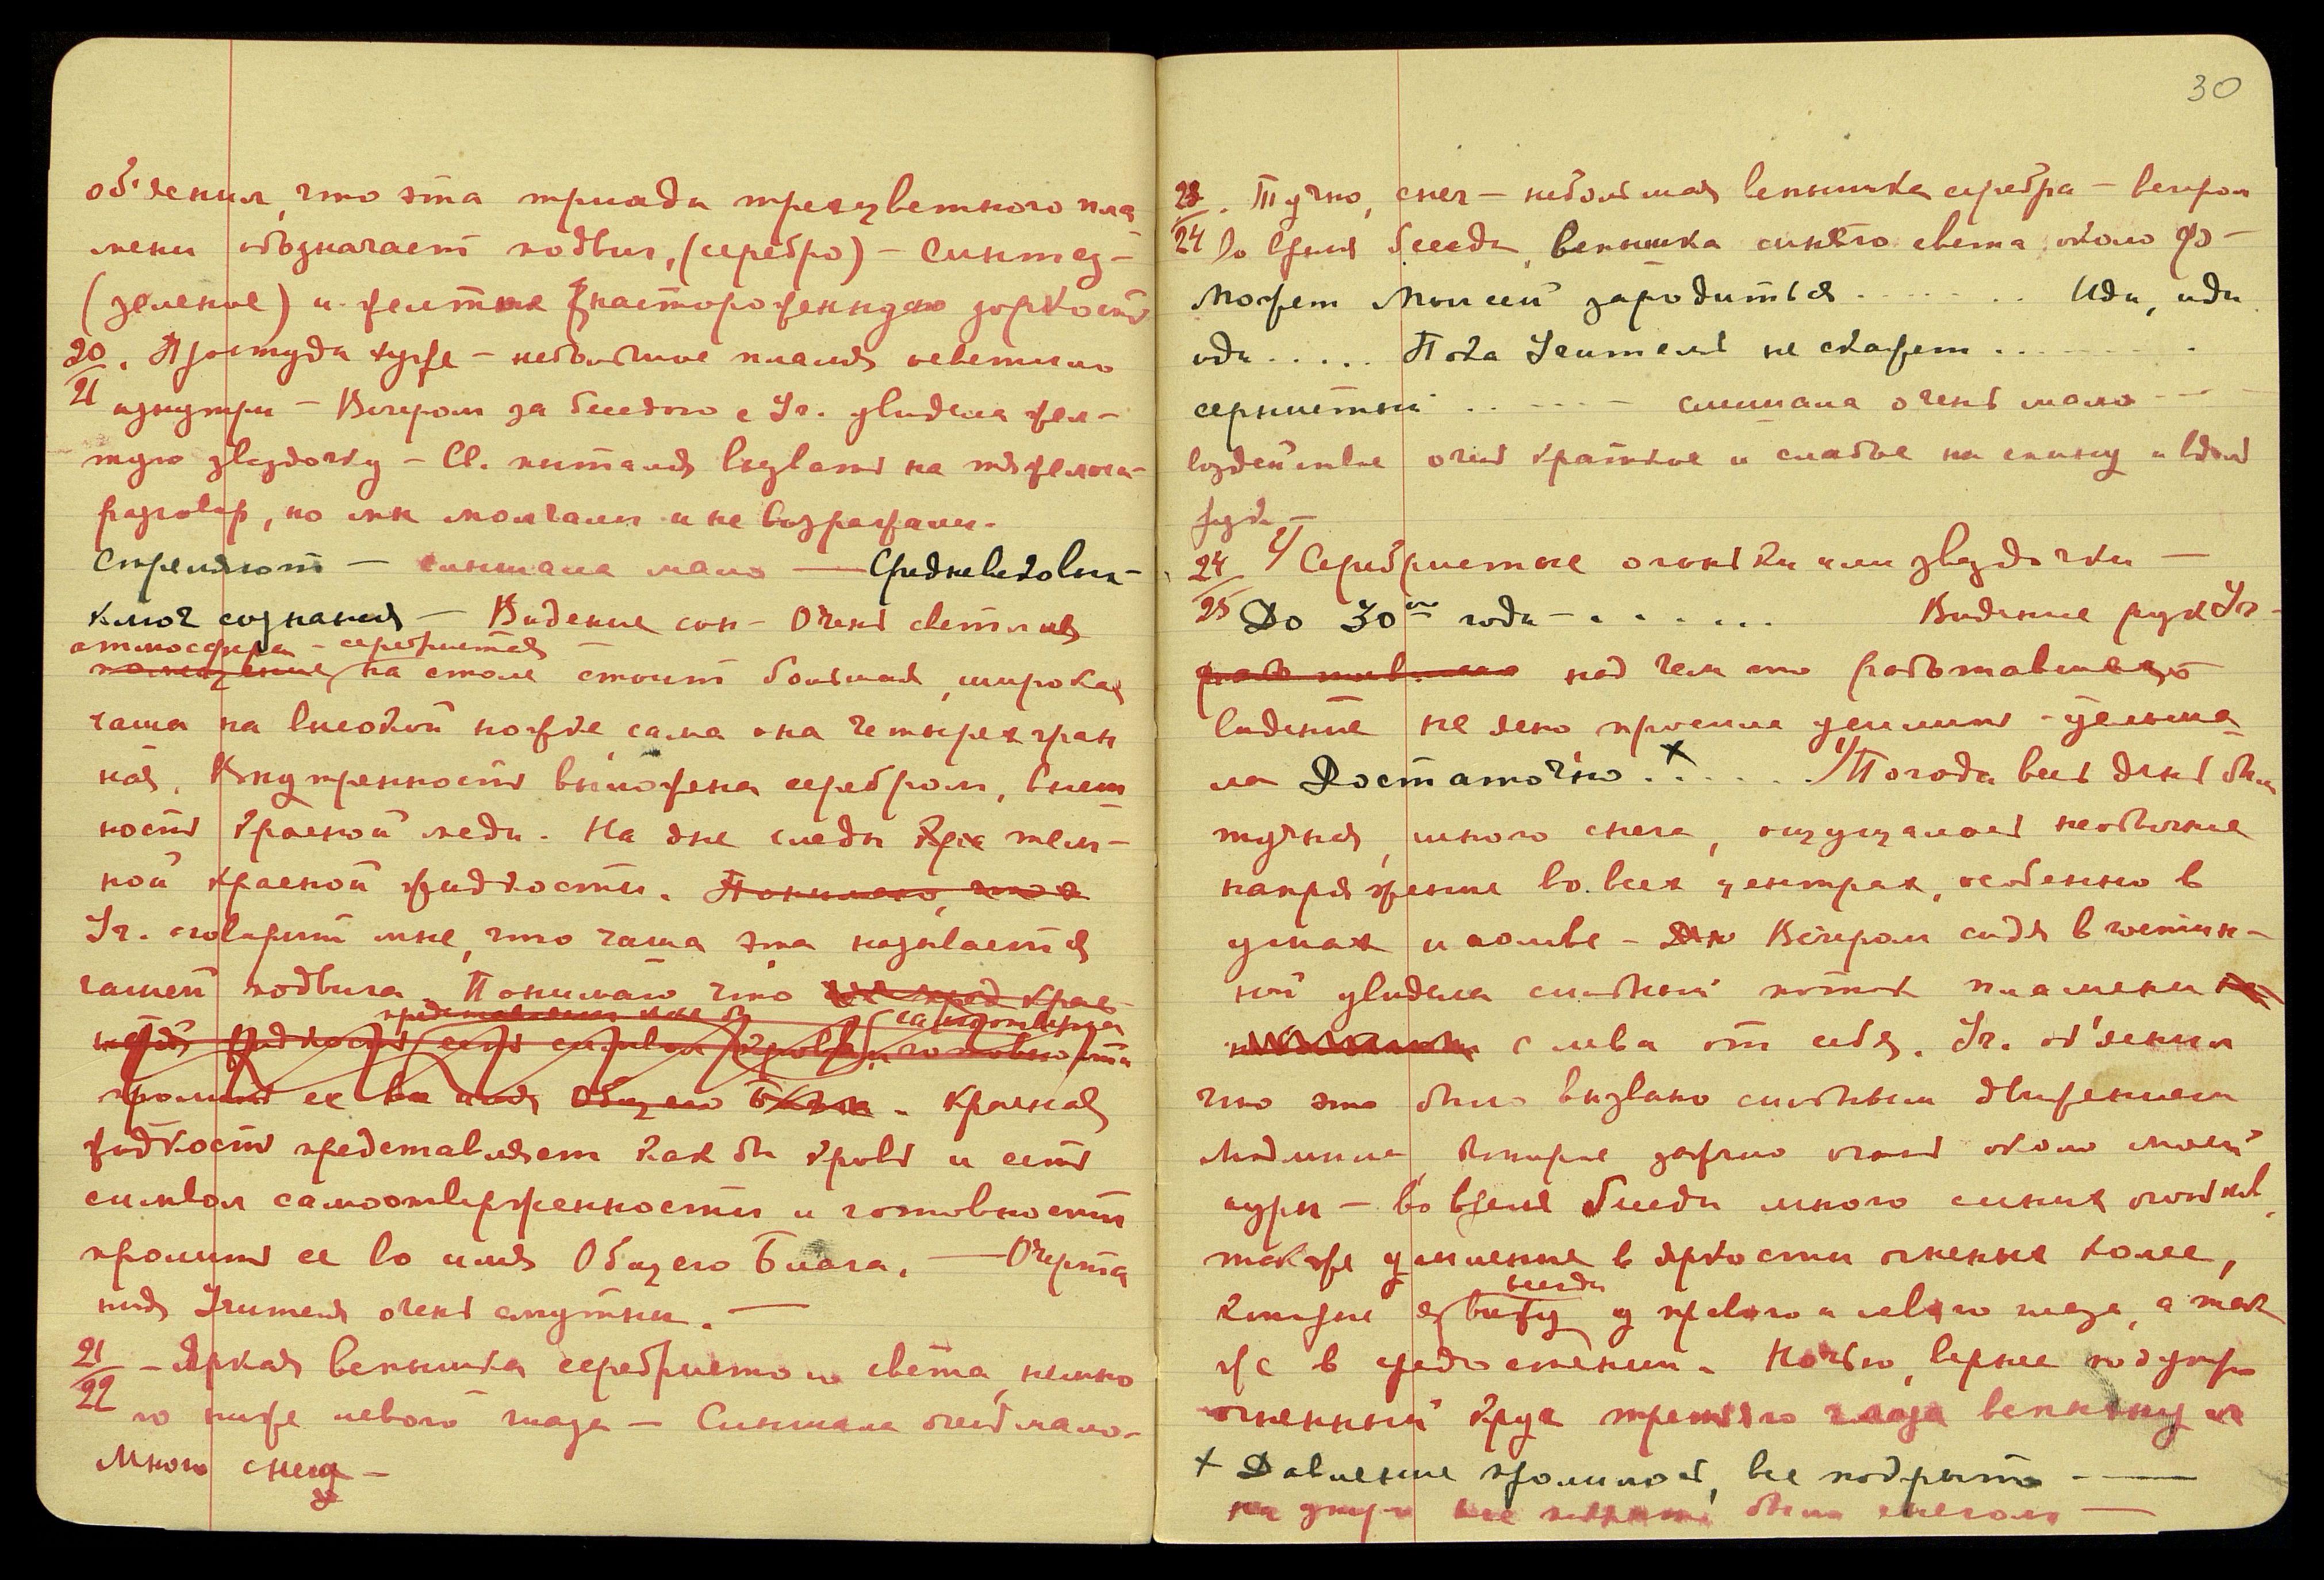 об'яснил, что эта триада трехцветного пла
мени обозначает подвиг, (серебро) – Синтез –
(зеленое) и желтые настороженную зоркость
20/21. Простуда хуже – небольшое пламя осветило
изнутри – Вечером за беседою с Уч. увидела жел-
тую звездочку – Св. пытался вызвать на тяжелый
разговор, но мы молчали и не возражали.
Стремлют – слышала мало — Средневековый –
ключ сознания – Видение сон – Очень светлая
атмосфера – серебристая
помещение на столе стоит большая, широкая
чаша на высокой ножке, сама она четырехгран
ная. Внутренность выложена серебром, внеш
ность красной меди. На дне следы тем-
ной красной жидкости. Понимаю, что я
Уч. говорит мне, что чаша эта называется
чашей подвига. Понимаю что крас-
представляет как бы самоотвержен
жидкость есть символ крови и готовности
пролить ее во имя Общего Блага. Красная
жидкость представляет как бы кровь и есть
символ самоотверженности и готовности
пролить ее во имя Общего Блага. — Очерта
ния Учителя очень смутны. —
21/22 – Яркая вспышка серебристого света, немно
го ниже левого глаза – Слышала очень мало –
Много снега –
30
23/24. Тучно, снег – небольшая вспышка серебра – вечером
Во время беседы, вспышка синего света около Ф –
Может Моисей зародиться . . . . . . . Иди, иди
иди . . . . . Пока Учитель не скажет . . . . . . .
сернистый . . - - - – слышала очень мало – –
воздействие очень краткое и слабое на спину и вдоль
24/25 2/ Серебристые огоньки или звездочки —
До 30го года – . . . . . . Видение рук Уч –
над чем то работавших
видение не ясно просила усилить – услыша
ла Достаточно.x . . . . . 1/ Погода весь день была
тучная, много снега, ощущалось необычное
напряжение во всех центрах, особенно в
ушах и голове – Вечером сидя в гостин-
ной увидела сильный поток пламени
слева от себя. Уч. об'яснил
что это было вызвано сильным движением
Людмилы, которое зажгло огонь около моей
ауры – во время беседы много синих огоньков,
также усиление в яркости огненных колес,
всегда
которые я вижу у правого и левого глаза, а так
же в средостении. Ночью, вернее под утро
огненный круг третьего глаза вспыхнул
x Давление продлилось, все подрыто – —
на утро все покрыто было снегом —